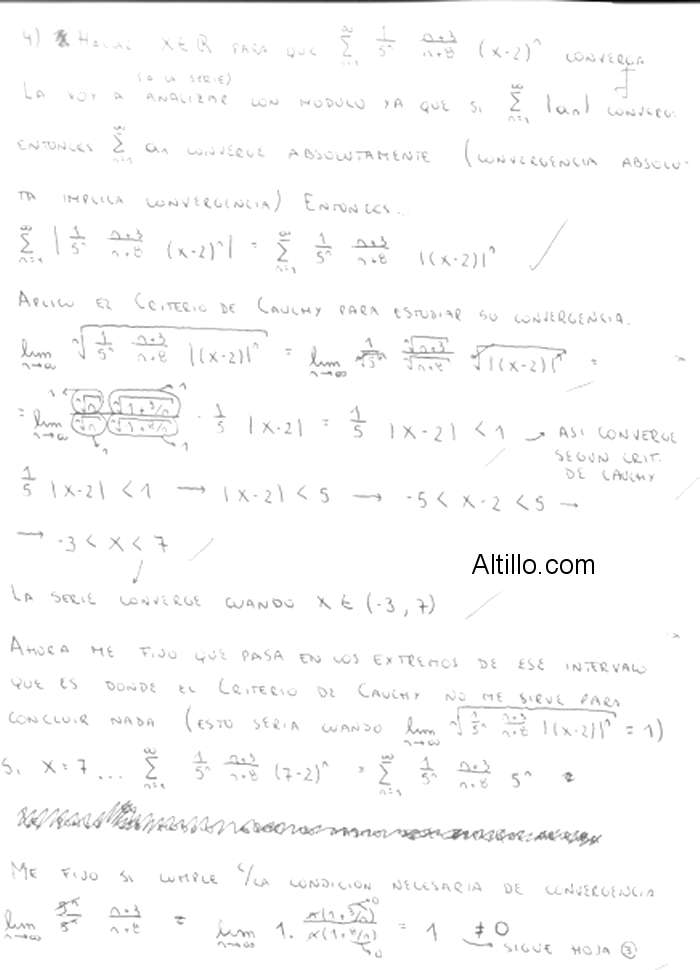 4) HALLAR X∈ℝ PARA QUE ∑_{n=1}^{∞} 1/5ⁿ (n+3)/(n+8) (x-2)ⁿ CONVERGA
(A LA SERIE)
LA VOY A ANALIZAR CON MODULO YA QUE SI ∑_{n=1}^{∞} |an| CONVERGE
ENTONCES ∑_{n=1}^{∞} an CONVERGE ABSOLUTAMENTE (CONVERGENCIA ABSOLU-
TA IMPLICA CONVERGENCIA) ENTONCES...
∑_{n=1}^{∞} |1/5ⁿ (n+3)/(n+8) (x-2)ⁿ| = ∑_{n=1}^{∞} 1/5ⁿ (n+3)/(n+8) |(x-2)|ⁿ
APLICO EL CRITERIO DE CAUCHY PARA ESTUDIAR SU CONVERGENCIA.
lim_{n→∞} ⁿ√(1/5ⁿ (n+3)/(n+8) |(x-2)|ⁿ) = lim_{n→∞} 1/ⁿ√5ⁿ ⁿ√(n+3)/ⁿ√(n+8) ⁿ√(|(x-2)|ⁿ) =
= lim_{n→∞} (ⁿ√n ⁿ√(1+3/n))/(ⁿ√n ⁿ√(1+8/n)) · 1/5 |x-2| = 1/5 |x-2| < 1 → ASI CONVERGE
SEGUN CRIT.
DE CAUCHY
1/5 |x-2| < 1 → |x-2| < 5 → -5 < x-2 < 5 →
→ -3 < x < 7
Altillo.com
LA SERIE CONVERGE CUANDO X∈(-3,7)
AHORA ME FIJO QUE PASA EN LOS EXTREMOS DE ESE INTERVALO
QUE ES DONDE EL CRITERIO DE CAUCHY NO ME SIRVE PARA
CONCLUIR NADA (ESTO SERIA CUANDO lim_{n→∞} ⁿ√(1/5ⁿ (n+3)/(n+8) |(x-2)|ⁿ) = 1)
SI X=7 ... ∑_{n=1}^{∞} 1/5ⁿ (n+3)/(n+8) (7-2)ⁿ = ∑_{n=1}^{∞} 1/5ⁿ (n+3)/(n+8) 5ⁿ
ME FIJO SI CUMPLE C/LA CONDICION NECESARIA DE CONVERGENCIA
lim_{n→∞} 5ⁿ/5ⁿ (n+3)/(n+8) = lim_{n→∞} 1 · n(1+3/n)/n(1+8/n) = 1 ≠ 0
→ SIGUE HOJA ③